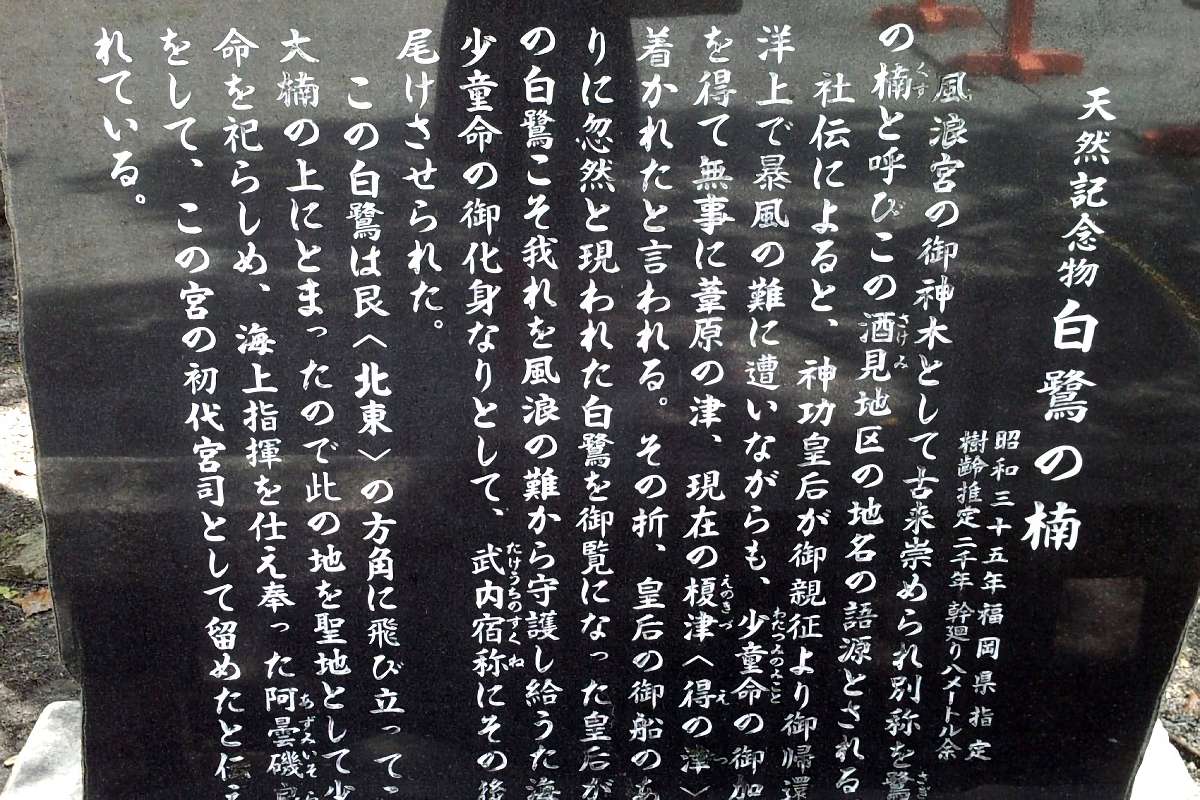 天然記念物 白鷺の楠
昭和三十五年福岡県指定
樹齢推定二千年 幹廻り八メートル余
風浪宮の御神木として古来崇められ別称を鷺
の楠と呼びこの酒見地区の地名の語源とされる
社伝によると、神功皇后が御親征より御帰還
洋上で暴風の難に遭いながらも、少童命の御加
を得て無事に葦原の津、現在の榎津〈得の津〉
着かれたと言われる。その折、皇后の御船のあ
りに忽然と現われた白鷺を御覧になった皇后が
の白鷺こそ我れを風浪の難から守護し給うた海
少童命の御化身なりとして、武内宿称にその後
尾けさせられた。
この白鷺は艮〈北東〉の方角に飛び立って
大楠の上にとまったので此の地を聖地として少
命を祀らしめ、海上指揮を仕え奉った阿曇磯良
をして、この宮の初代宮司として留めたと伝え
れている。